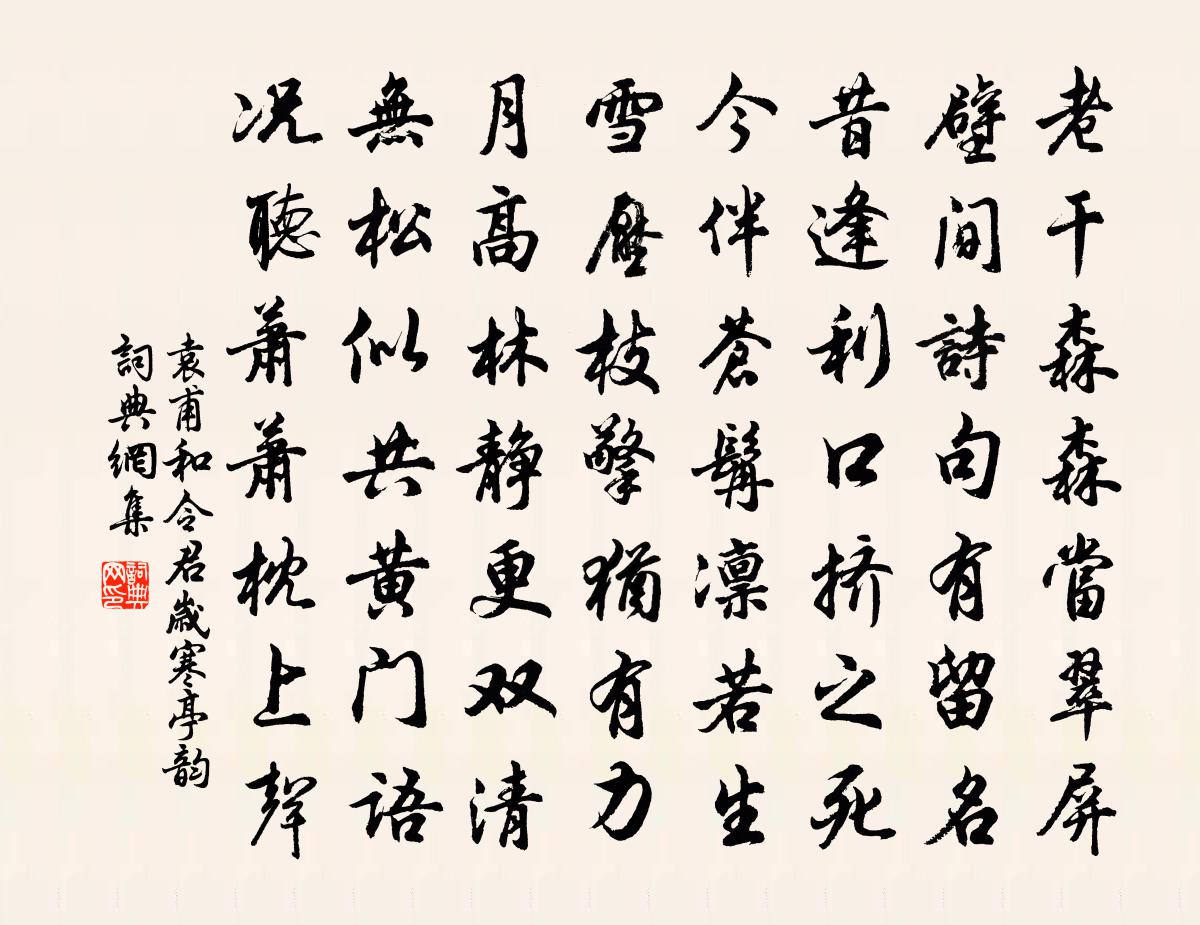 老干森森當翠屏
壁间詩句有留名
昔逢利口挤之死
今伴蒼髯凛若生
雪壓枝擎猶有力
月高林静更双清
無松似共黄门语
况聽蕭蕭枕上聲
袁甫和令君歲寒亭韵
詞典網集
詞典网印